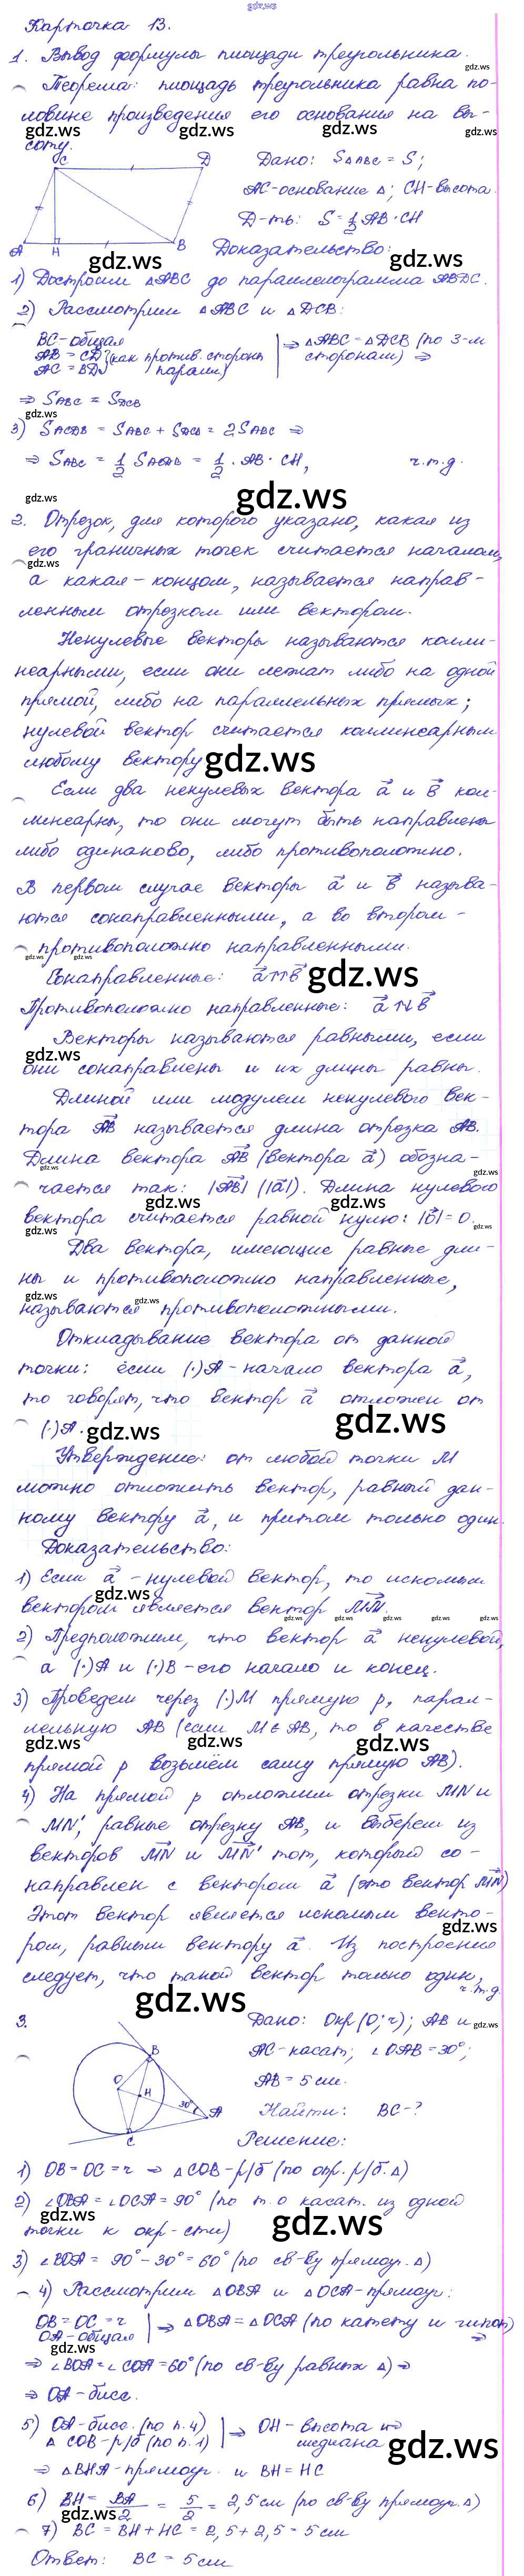 gdz.ws
Карточка 13.
1. Вывод формулы площади треугольника.
Теорема: площадь треугольника равна по-
ловине произведения его основания на вы-
соту.
C D
A H B
Дано: S△ABC = S;
AC-основание △; CH-высота.
Д-ть: S = 1/2 AB · CH
Доказательство:
1) Достроим △ABC до параллелограмма ABDC.
2) Рассмотрим △ABC и △DCB:
BC-общая
AB = CD (как против. стороны
AC = BD парал.)
⇒ △ABC = △DCB (по 3-м
сторонам) ⇒
⇒ SABC = SDCB
3) SACDB = SABC + SDCB = 2SABC ⇒
⇒ SABC = 1/2 SACDB = 1/2 · AB · CH, ч.т.д.
2. Отрезок, для которого указано, какая из
его граничных точек считается началом,
а какая - концом, называется направ-
ленным отрезком или вектором.
Ненулевые векторы называются колли-
неарными, если они лежат либо на одной
прямой, либо на параллельных прямых;
нулевой вектор считается коллинеарным
любому вектору
Если два ненулевых вектора a⃗ и b⃗ кол-
линеарны, то они могут быть направлены
либо одинаково, либо противоположно.
В первом случае векторы a⃗ и b⃗ называ-
ются сонаправленными, а во втором -
противоположно направленными.
Сонаправленные: a⃗↑↑b⃗
Противоположно направленные: a⃗↑↓b⃗
Векторы называются равными, если
они сонаправлены и их длины равны.
Длиной или модулем ненулевого век-
тора AB⃗ называется длина отрезка AB.
Длина вектора AB⃗ (вектора a⃗) обозна-
чается так: |AB⃗| (|a⃗|). Длина нулевого
вектора считается равной нулю: |0⃗| = 0.
Два вектора, имеющие равные дли-
ны и противоположно направленные,
называются противоположными.
Откладывание вектора от данной
точки: если (·)A - начало вектора a⃗,
то говорят, что вектор a⃗ отложен от
(·)A.
Утверждение: от любой точки M
можно отложить вектор, равный дан-
ному вектору a⃗, и притом только один.
Доказательство:
1) Если a⃗ - нулевой вектор, то искомым
вектором является вектор MM⃗.
2) Предположим, что вектор a⃗ ненулевой,
а (·)A и (·)B - его начало и конец.
3) Проведем через (·)M прямую p, парал-
лельную AB (если M∈AB, то в качестве
прямой p возьмём саму прямую AB).
4) На прямой p отложим отрезки MN и
MN', равные отрезку AB, и выберем из
векторов MN⃗ и MN'⃗ тот, который со-
направлен с вектором a⃗ (это вектор MN⃗)
Этот вектор является искомым векто-
ром, равным вектору a⃗. Из построения
следует, что такой вектор только один,
ч.т.д.
3.
B
O
H
30°
A
C
Дано: Окр(O; r); AB и
AC-касат; ∠OAB = 30°;
AB = 5 см.
Найти: BC-?
Решение:
1) OB = OC = r ⇒ △COB - р/б (по опр. р/б. △)
2) ∠OBA = ∠OCA = 90° (по т. о касат. из одной
точки к окр-сти)
3) ∠BOA = 90° - 30° = 60° (по св-ву прямоуг. △)
4) Рассмотрим △OBA и △OCA - прямоуг:
OB = OC = r
OA - общая
⇒ △OBA = △OCA (по катету и гипот)
⇒
⇒ ∠BOA = ∠COA = 60° (по св-ву равных △) ⇒
⇒ OA - бисс.
5) OA - бисс. (по п. 4)
△ COB - р/б (по п. 1)
⇒ OH - высота и
медиана
⇒ △BHA - прямоуг. и BH = HC
6) BH = BA/2 = 5/2 = 2,5 см (по св-ву прямоуг. △)
7) BC = BH + HC = 2,5 + 2,5 = 5 см
Ответ: BC = 5 см